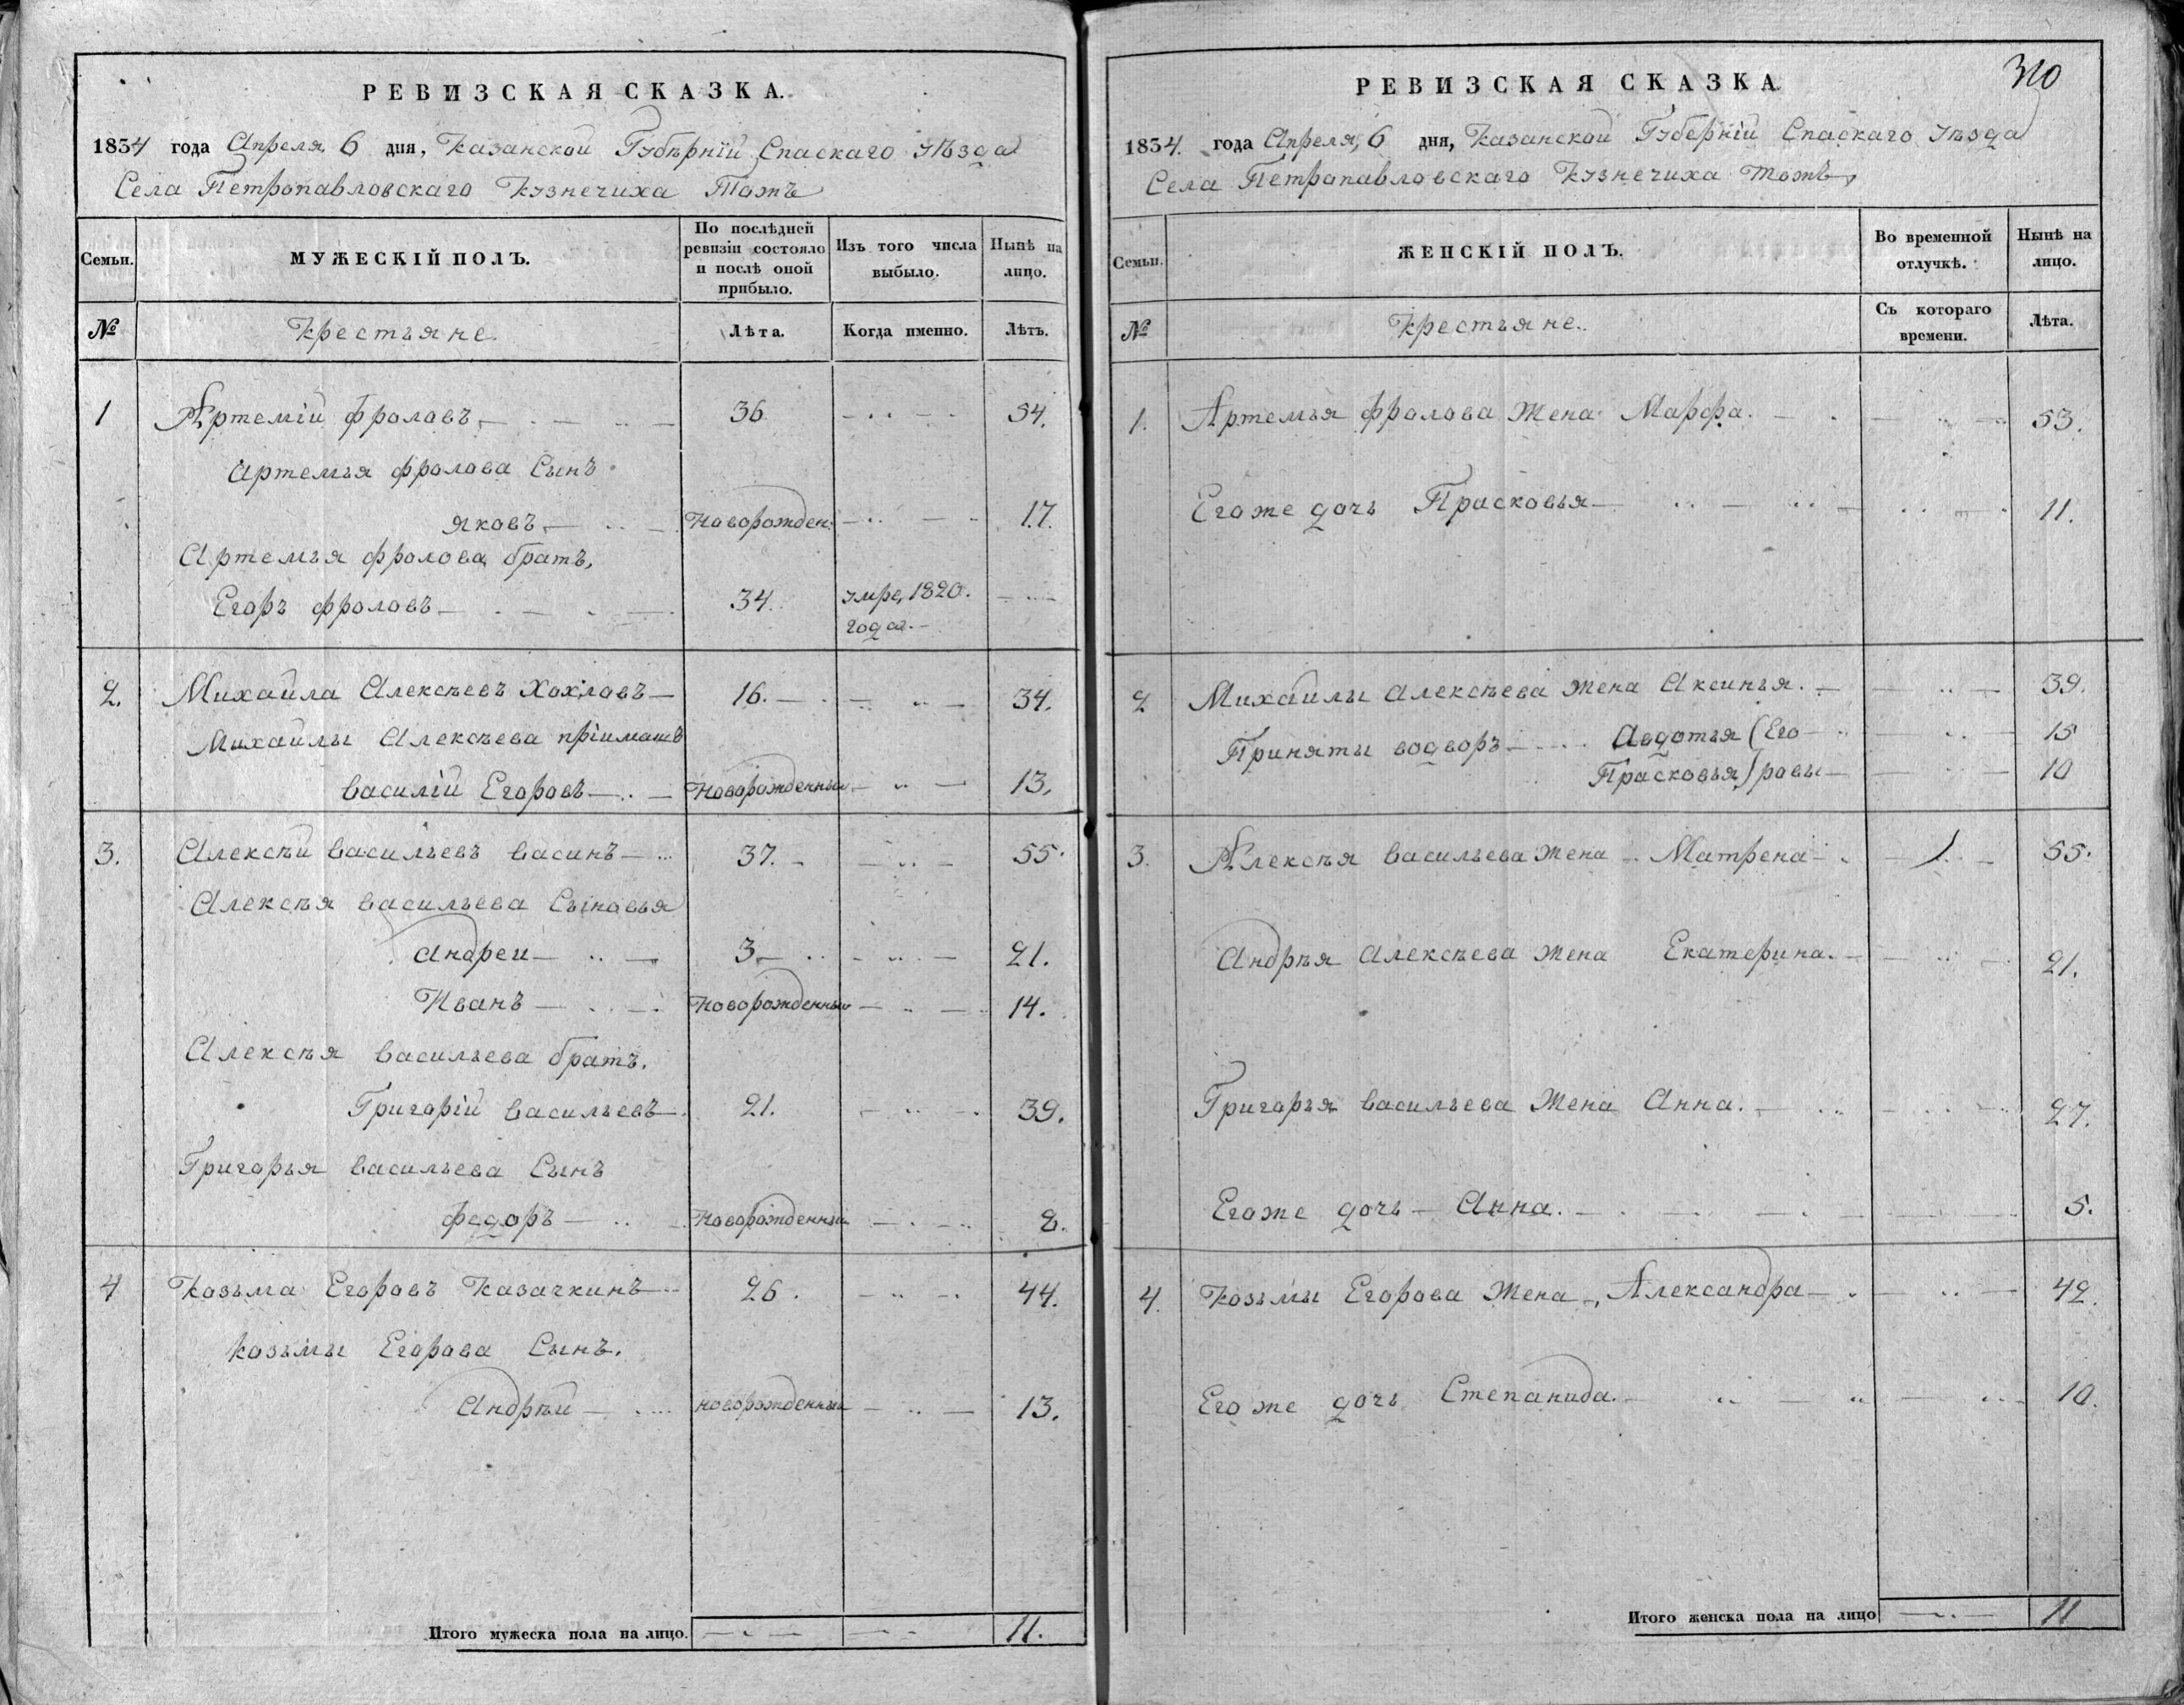 РЕВИЗСКАЯ СКАЗКА.
1834 года Апреля 6 дня, Казанской Губѣрнiй Спаскаго уѣзда
Села Петропавловскаго Кузнечиха Тожъ
Семьи. МУЖЕСКІЙ ПОЛЪ. По послѣдней ревизіи состояло и послѣ оной прибыло. Изъ того числа выбыло. Нынѣ на лицо.
№ Крестьяне. Лѣта. Когда именно. Лѣтъ.
1 Артемiй фроловъ 36. 54.
Артемья фролова Сынъ
яковъ Новорожден: 17.
Артемья фролова братъ,
Егоръ фроловъ 34. умре, 1820.
года.
2. Михайла Алексѣевъ Хохловъ 16. 34.
Михайлы Алексѣева прiимашъ
василiй Егоровъ Новорожденный 13,
3. Алексѣй васильевъ васинъ 37. 55.
Алексѣя васильева Сыновья
Андреи 3 21.
Иванъ Новорожденный 14.
Алексѣя васильева братъ.
Григорiй васильевъ 21. 39.
Григорья васильева Сынъ
федоръ Новорожденный 8.
4 Козьма Егоровъ Казачкинъ 26. 44.
козьмы Егорова Сынъ.
Андрѣй новорожденный 13.
Итого мужеска пола на лицо. 11.
310
РЕВИЗСКАЯ СКАЗКА.
1834. года Апреля, 6 дня, Казанской Губернiй Спаскаго уѣзда
Села Петропавловскаго Кузнечиха тожъ
Семьи. ЖЕНСКІЙ ПОЛЪ. Во временной отлучкѣ. Нынѣ на лицо.
№ Крестьяне. Съ котораго времени. Лѣта.
1. Артемья фролова Жена Марфа. 53.
Егоже дочь Прасковья 11.
2 Михайлы Алексѣева жена Аксинья. 39.
Приняты водворъ Авдотья (Его 15
Прасковья) ровы 10
3. Алексѣя васильева Жена Матрена 55.
Андрѣя Алексѣева жена Екатерина. 21.
Григорья васильева Жена Анна. 27.
Егоже дочь Анна. 5.
4. Козьмы Егорова Жена Александра 42.
Егоже дочь Степанида. 10.
Итого женска пола на лицо 11